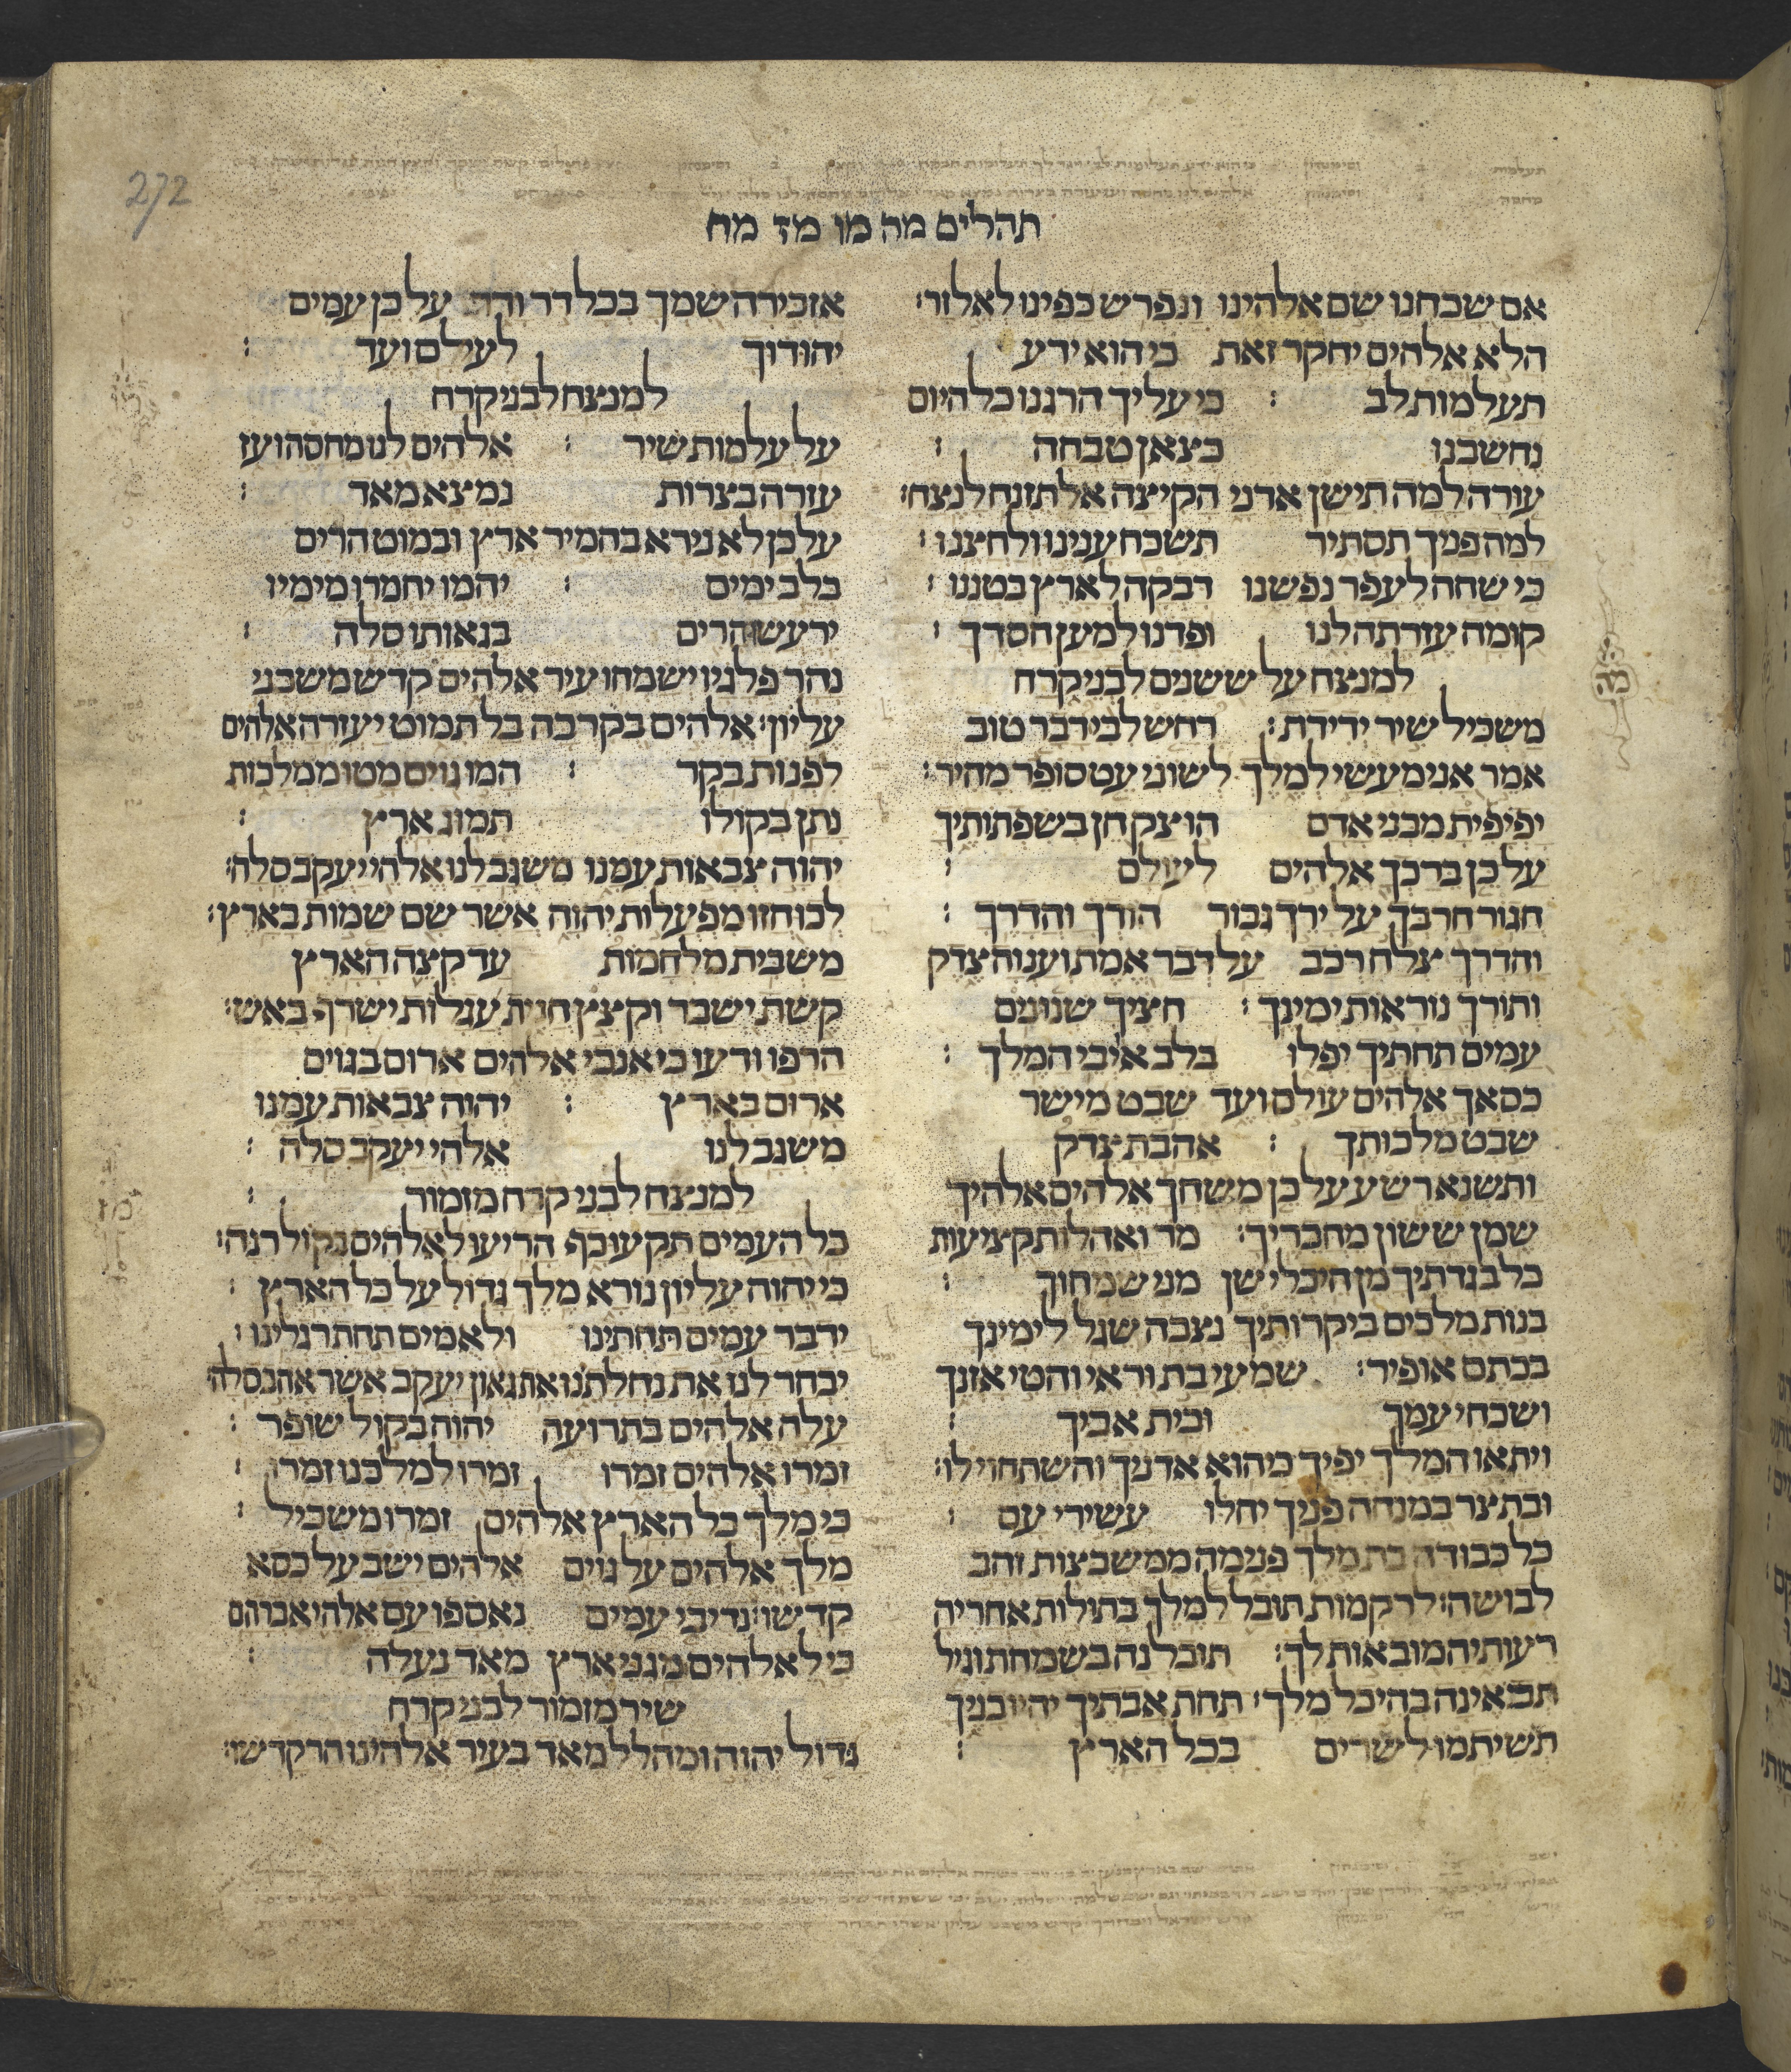 272
תהלים מה מו מז מח
אם שכחנו שם אלהינו ונפרש כפינו לאל זר׃
הלא אלהים יחקר זאת כי הוא ידע
תעלמות לב ׃ כי עליך הרגנו כל היום
נחשבנו כצאן טבחה ׃
עורה למה תישן אדני הקיצה אל תזנח לנצח׃
למה פניך תסתיר תשכח ענינו ולחצנו ׃
כי שחה לעפר נפשנו דבקה לארץ בטננו ׃
קומה עזרתה לנו ופדנו למען חסדך ׃
למנצח על ששנים לבני קרח
משכיל שיר ידידת ׃ רחש לבי דבר טוב
אמר אני מעשי למלך לשוני עט סופר מהיר ׃
יפיפית מבני אדם הוצק חן בשפתותיך
על כן ברכך אלהים לעולם ׃
חגור חרבך על ירך גבור הודך והדרך ׃
והדרך צלח רכב על דבר אמת וענוה צדק
ותורך נוראות ימינך ׃ חציך שנונים
עמים תחתיך יפלו בלב אויבי המלך ׃
כסאך אלהים עולם ועד שבט מישר
שבט מלכותך ׃ אהבת צדק
ותשנא רשע על כן משחך אלהים אלהיך
שמן ששון מחבריך ׃ מר ואהלות קציעות
כל בגדתיך מן היכלי שן מני שמחוך ׃
בנות מלכים ביקרותיך נצבה שגל לימינך
בכתם אופיר ׃ שמעי בת וראי והטי אזנך
ושכחי עמך ובית אביך ׃
ויתאו המלך יפיך כי הוא אדניך והשתחוי לו׃
ובת צר במנחה פניך יחלו עשירי עם ׃
כל כבודה בת מלך פנימה ממשבצות זהב
לבושה׃ לרקמות תובל למלך בתולות אחריה
רעותיה מובאות לך ׃ תובלנה בשמחת וגיל
תבאינה בהיכל מלך ׃ תחת אבתיך יהיו בניך
תשיתמו לשרים בכל הארץ ׃
מה
אזכירה שמך בכל דר ודר על כן עמים
יהודוך לעולם ועד ׃
למנצח לבני קרח
על עלמות שיר ׃ אלהים לנו מחסה ועז
עזרה בצרות נמצא מאד ׃
על כן לא נירא בהמיר ארץ ובמוט הרים
בלב ימים ׃ יהמו יחמרו מימיו
ירעשו הרים בגאותו סלה ׃
נהר פלגיו ישמחו עיר אלהים קדש משכני
עליון׃ אלהים בקרבה בל תמוט יעזרה אלהים
לפנות בקר ׃ המו גוים מטו ממלכות
נתן בקולו תמוג ארץ ׃
יהוה צבאות עמנו משגב לנו אלהי יעקב סלה׃
לכו חזו מפעלות יהוה אשר שם שמות בארץ׃
משבית מלחמות עד קצה הארץ
קשת ישבר וקצץ חנית עגלות ישרף באש׃
הרפו ודעו כי אנכי אלהים ארום בגוים
ארום בארץ ׃ יהוה צבאות עמנו
משגב לנו אלהי יעקב סלה ׃
למנצח לבני קרח מזמור ׃
כל העמים תקעו כף הריעו לאלהים בקול רנה׃
כי יהוה עליון נורא מלך גדול על כל הארץ ׃
ידבר עמים תחתינו ולאמים תחת רגלינו ׃
יבחר לנו את נחלתנו את גאון יעקב אשר אהב סלה׃
עלה אלהים בתרועה יהוה בקול שופר ׃
זמרו אלהים זמרו זמרו למלכנו זמרו ׃
כי מלך כל הארץ אלהים זמרו משכיל ׃
מלך אלהים על גוים אלהים ישב על כסא
קדשו׃ נדיבי עמים נאספו עם אלהי אברהם
כי לאלהים מגני ארץ מאד נעלה ׃
שיר מזמור לבני קרח
גדול יהוה ומהלל מאד בעיר אלהינו הר קדשו׃
מז